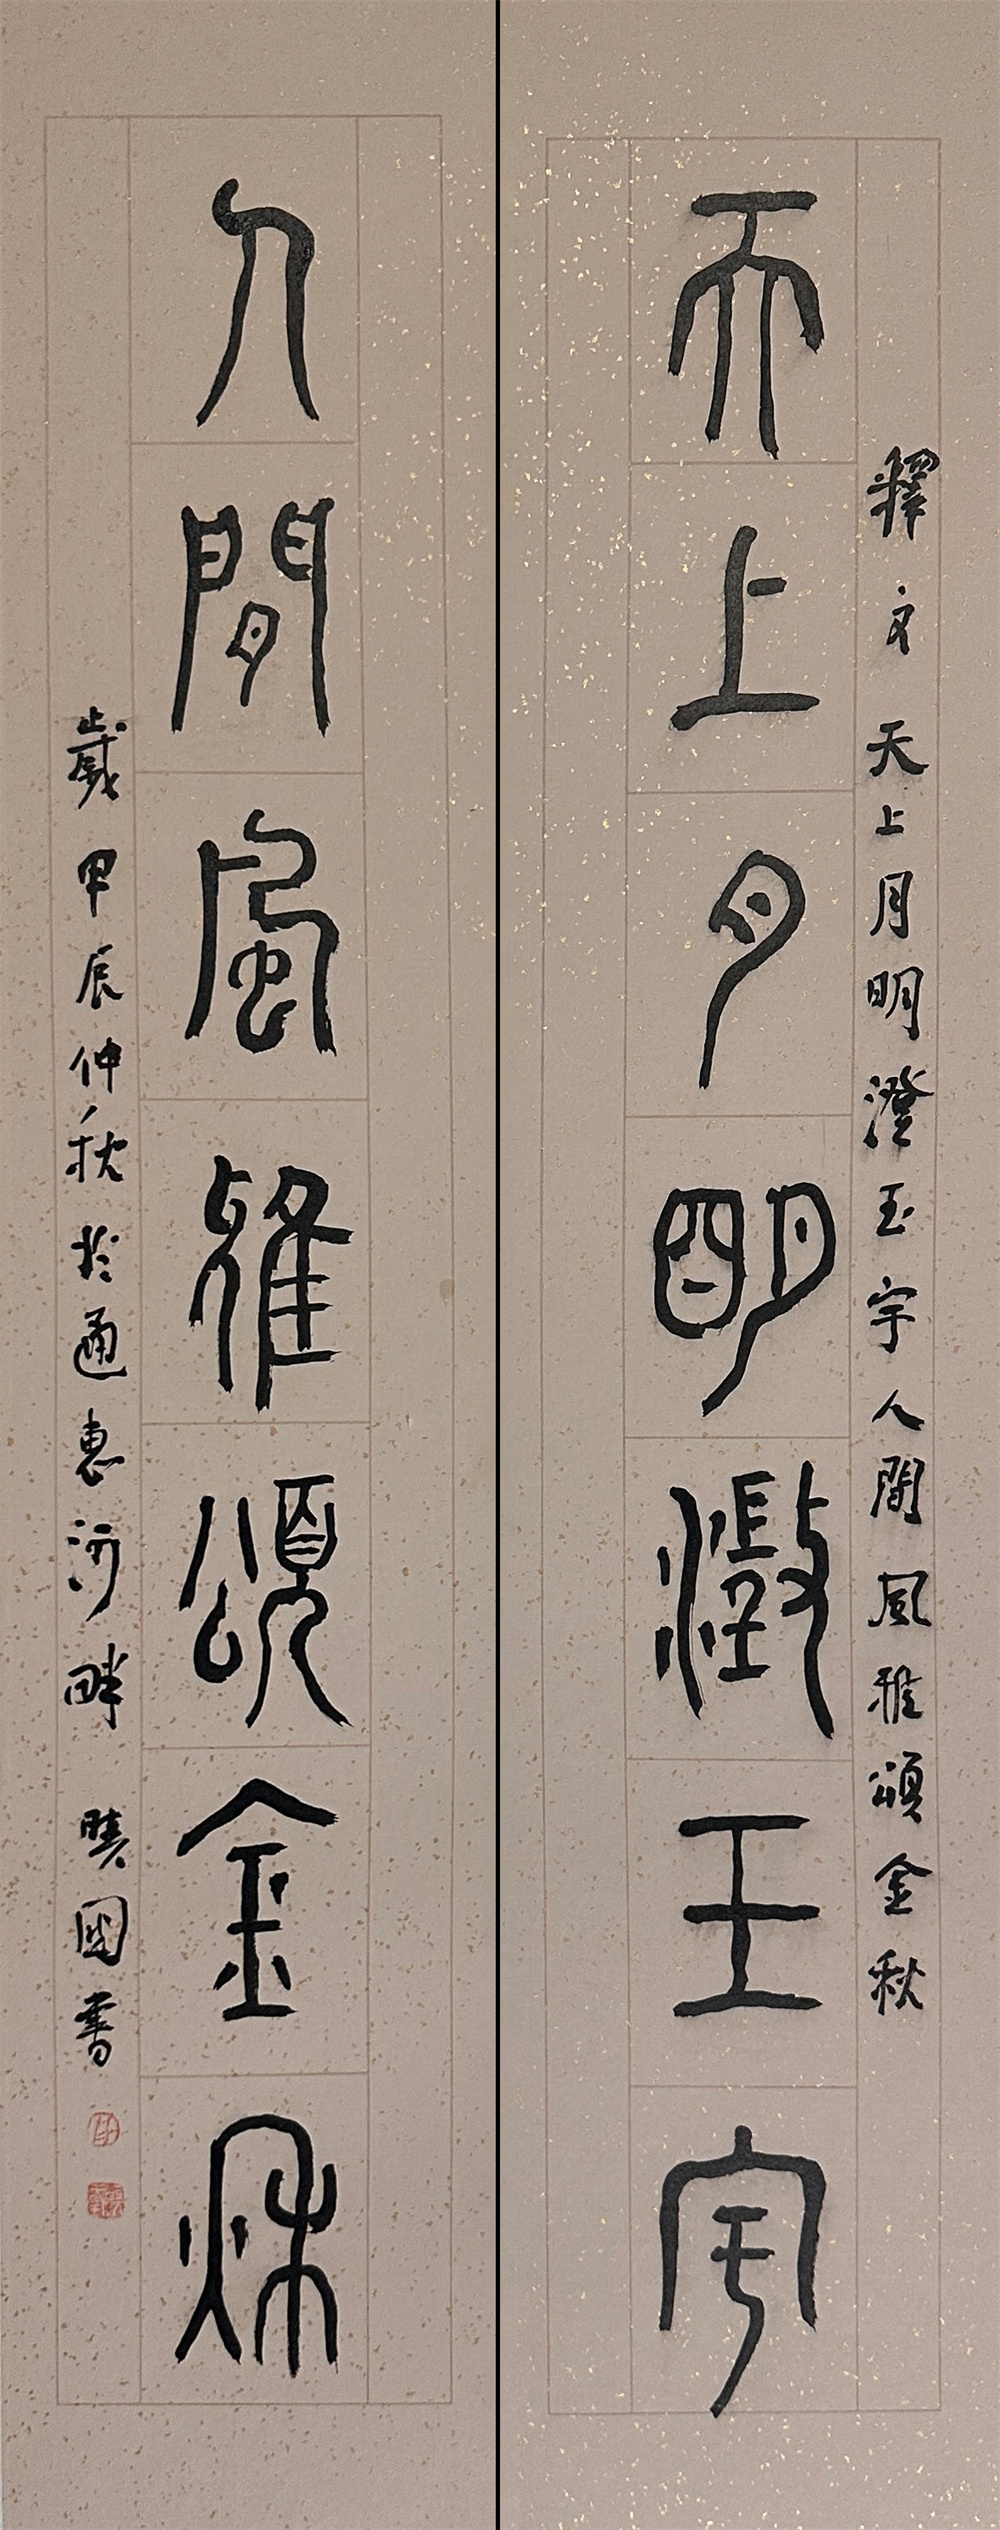 釋文 天上月明澄玉宇人間風雅頌金秋
天上月明澂玉宇
人間風雅頌金秋
歲甲辰仲秋於通惠河畔 曉國書